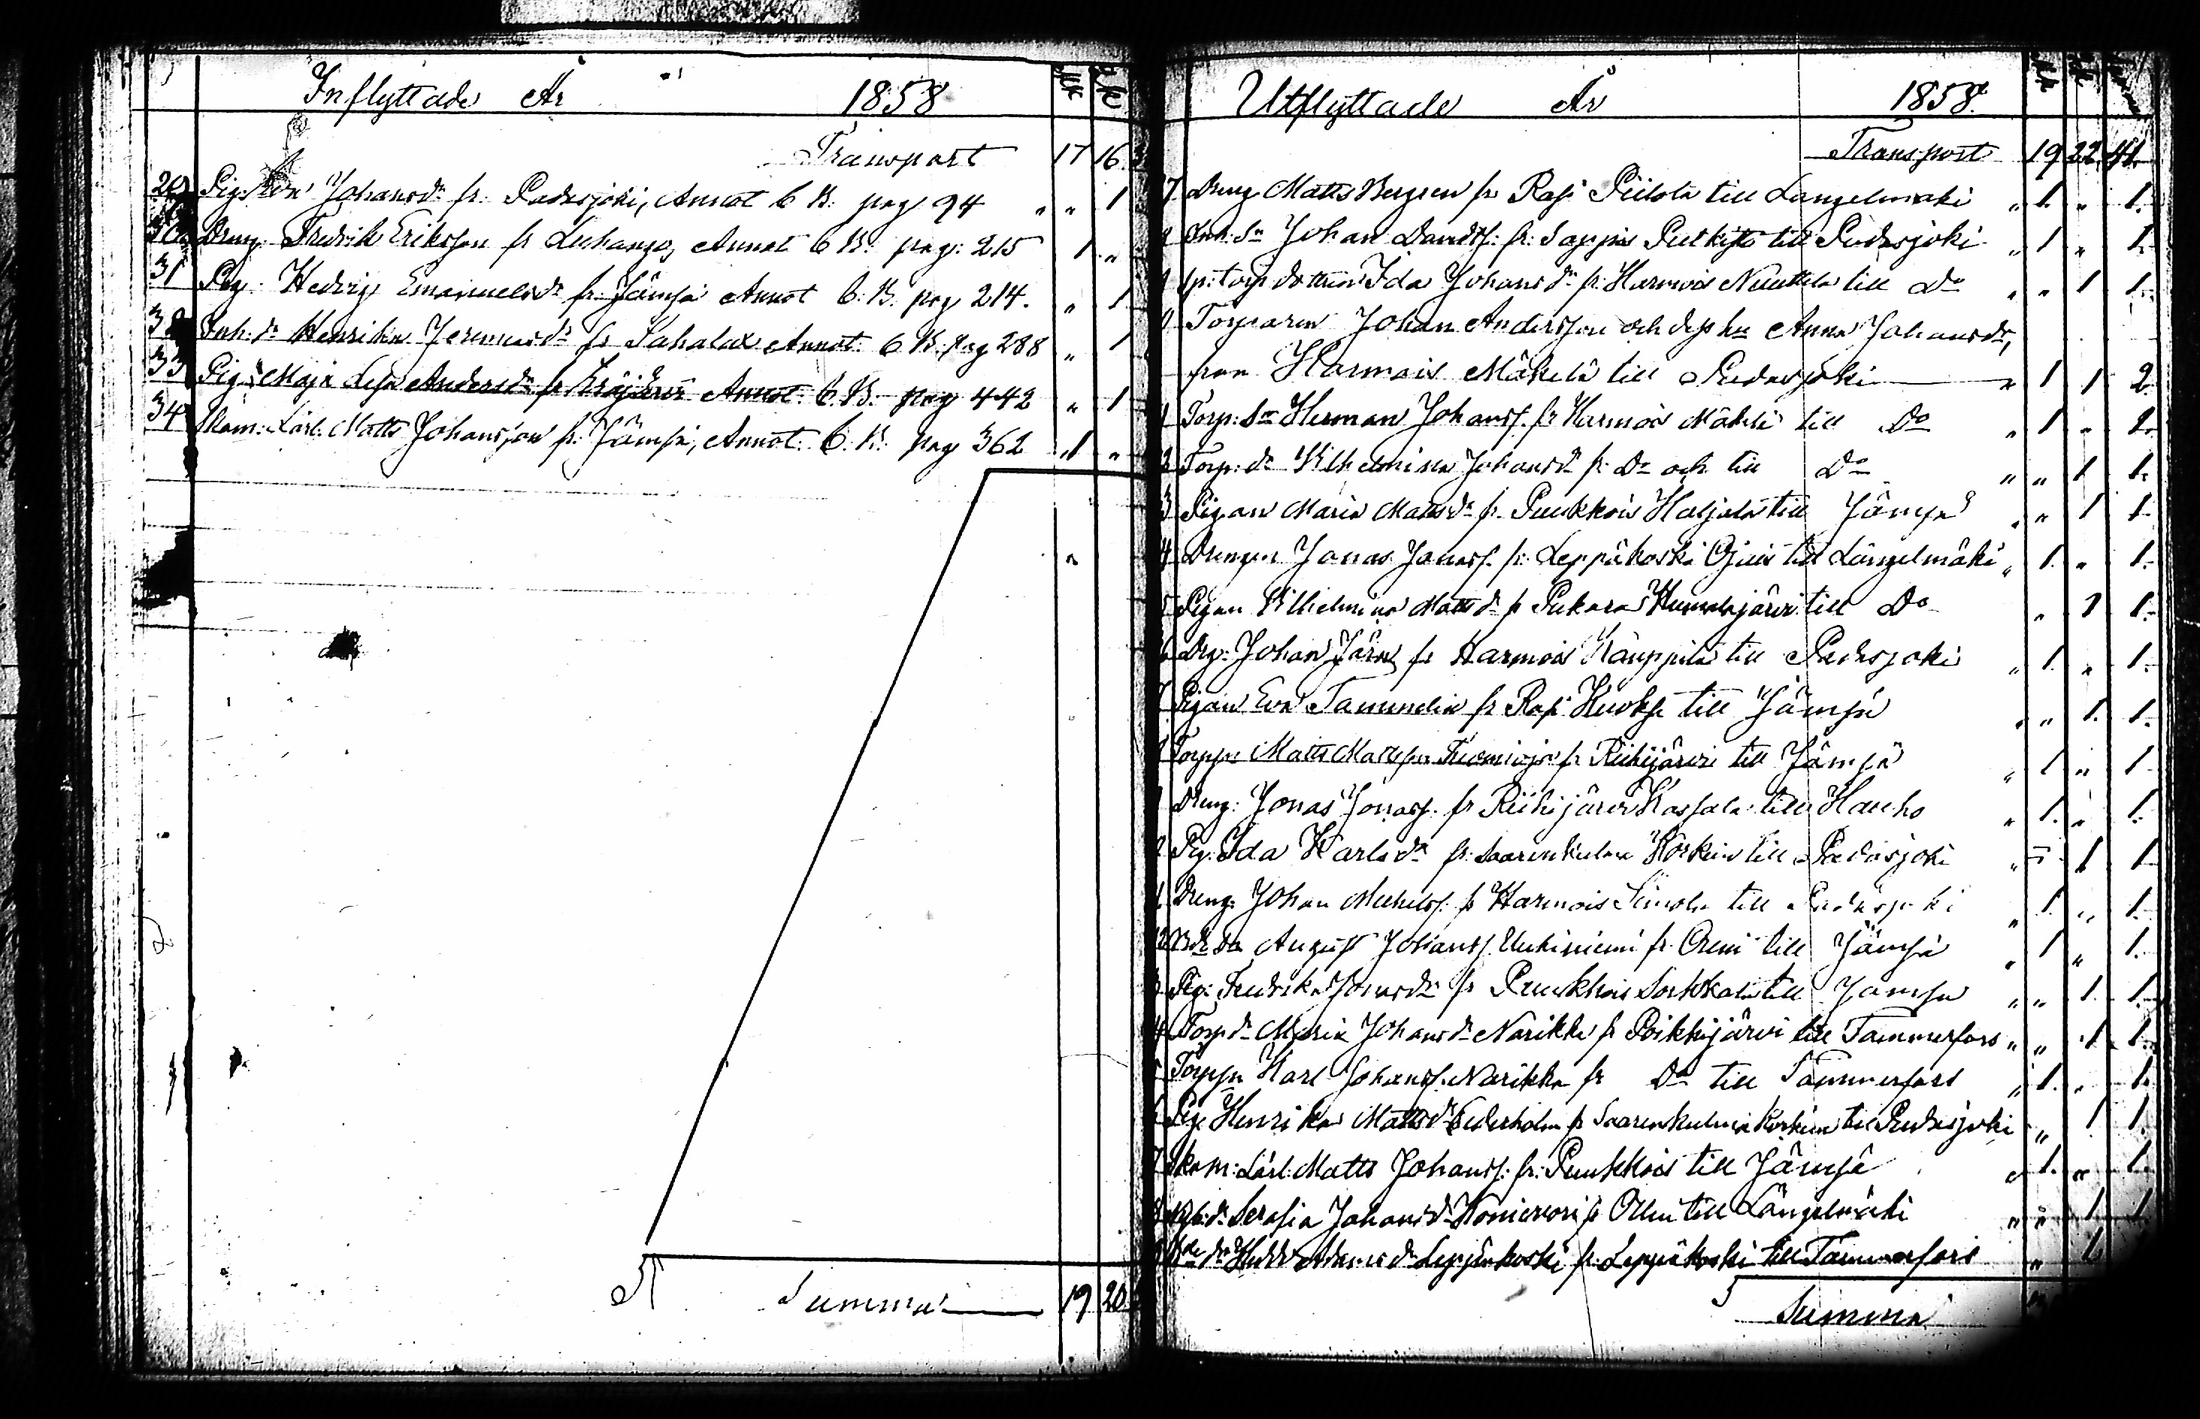 Inflyttade År 1858
Transport 17 16
29 Pig. Johansdr fr. Padasjoki, Annot C.B. pag 94 " " 1
30 Dreng. Fredrik Eriksson fr Luhango, Annot C.B. pag. 215 1 "
31 Pig. Hedvig Emanuelsdr fr. Jämsä Annot C.B. pag 214. " 1
32 Inh. dr Henrika Jeremiasdr fr Sahalax Annot C.B. pag 288 " 1
33 Pig. Maja Lisa Andersdr fr Annot. C.B. pag 442 " 1
34 Skom: Lärl. Matts Johansson fr. Jämsä, Annot. C.B. pag 362 1 "
Summa 19 20
Utflyttade År 1858
Transport 19 22 41.
7 Dreng Matts Bergsen fr Rasi Piilola till Längelmäki " 1. " 1.
Inh. Sn Johan Davidss. fr. Sappis Putkisto till Padasjoki " 1 " 1.
sp: torp dottren Ida Johansdr fr. Harmois Nuuttila till Do " " 1 1.
Torparen Johan Andersson och dess hu Anna Johansdr,
från Harmois Mäkelä till Padasjoki " 1 1 2
1 Torp. Sn Herman Johanss. fr Harmois Mäkelä till Do " 1 " 1.
2 Torp. dr Wilhelmina Johansdr fr. Do och till Do " " 1 1.
3 Pigan Maria Mattsdr fr. Puukkois Haljala till Jämsä " " 1 1
4 Drengen Jonas Jonass. fr. Leppäkoski Ojais till Längelmäki " 1. " 1.
5 Pigan Wilhelmina Mattsdr fr Pukara Humalajärvi till Do " 1 1.
6 Drg. Johan Järn fr Harmois Kauppila till Padasjoki " 1. " 1.
7 Pigan Eva Tamundin fr Rasi till Jämsä " " 1. 1.
Torppn Matts Mattsson fr Riihijärvi till Jämsä " 1 " 1
Dreng. Jonas Jonass. fr Riihijärvi Kassala till Hauho " 1. " 1.
Pig. Ida Karlsdr fr. Saarenkulma Körkein till Padasjoki " " 1 1
1. Dreng. Johan Michelss. fr Harmois Simola till Padasjoki " 1. " 1.
2 Bde Sn August Johanss. Uukiniemi fr. till Jämsä " 1 " 1.
3 Pig. Fredrika Jonasdr fr Puukkois Sorkkala till Jämsä " " 1 1.
4 Torp. dr Maria Johansdr Narikka fr Poikkijärvi till Tammerfors " " 1 1.
5 Torppn Karl Johanss. Narikka fr Do till Tammerfors " 1. " 1.
6 Pig. Henrika Mattsdr Cederholm fr Saarenkulma Körkein till Padasjoki " 1 1.
7 Skom: Lärl: Matts Johanss. fr. Puukkois till Jämsä " 1. " 1.
8 dr Serafia Johansdr fr Ollin till Längelmäki " " 1 1
9 Bde dr Adamsdr Leppäkoski fr. Leppäkoski till Tammerfors " 1
Summa